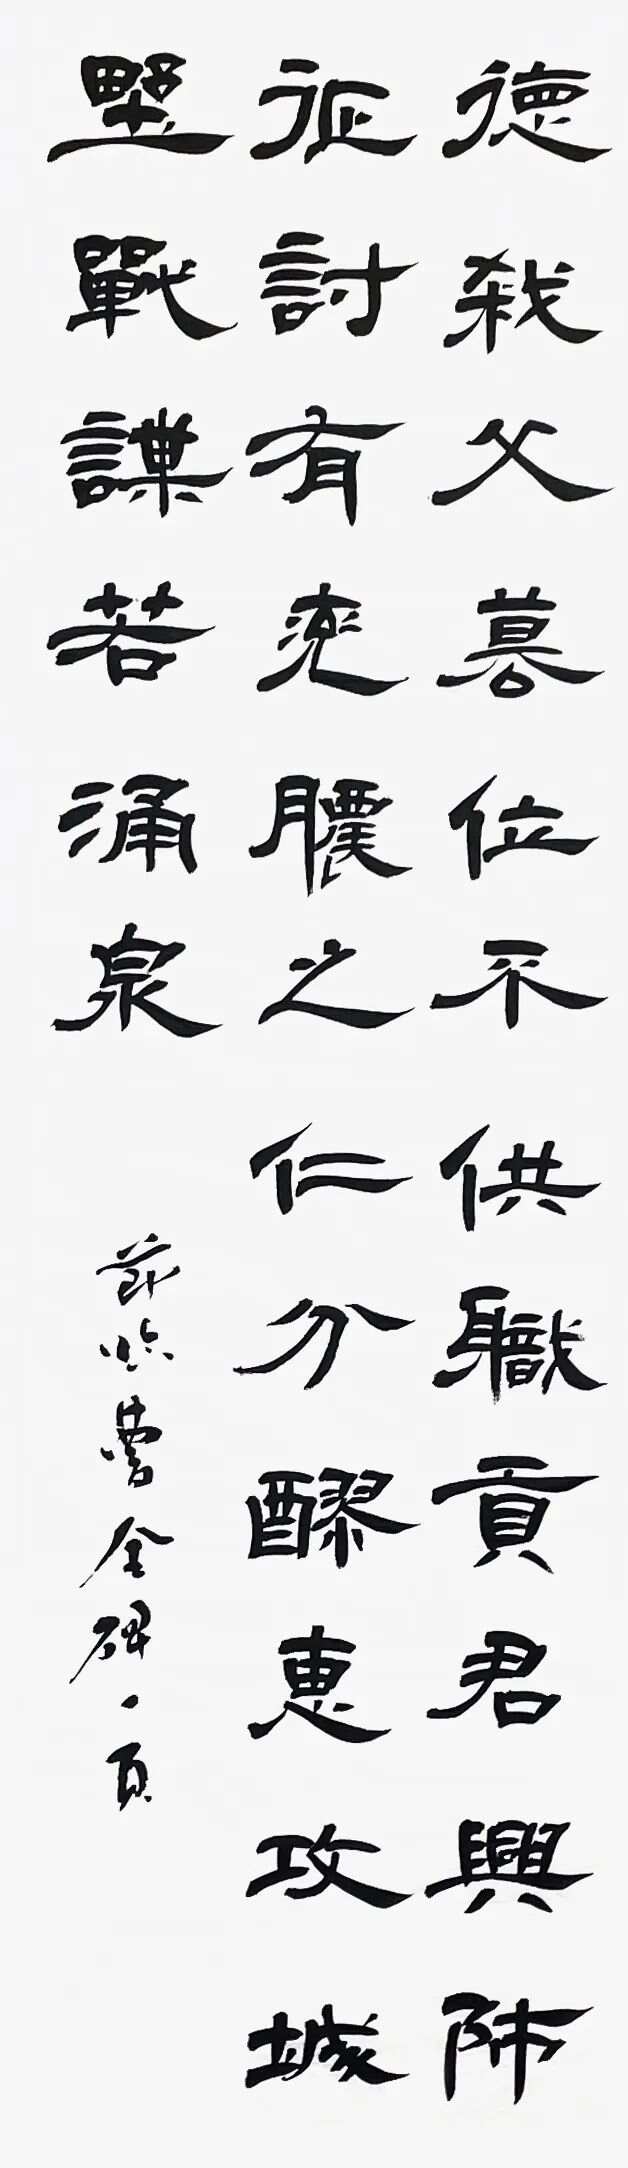 德弑父篡位不供職貢君興師
征討有兖膿之仁分醪惠攻城
野戰謀若涌泉
節臨曹全碑一頁